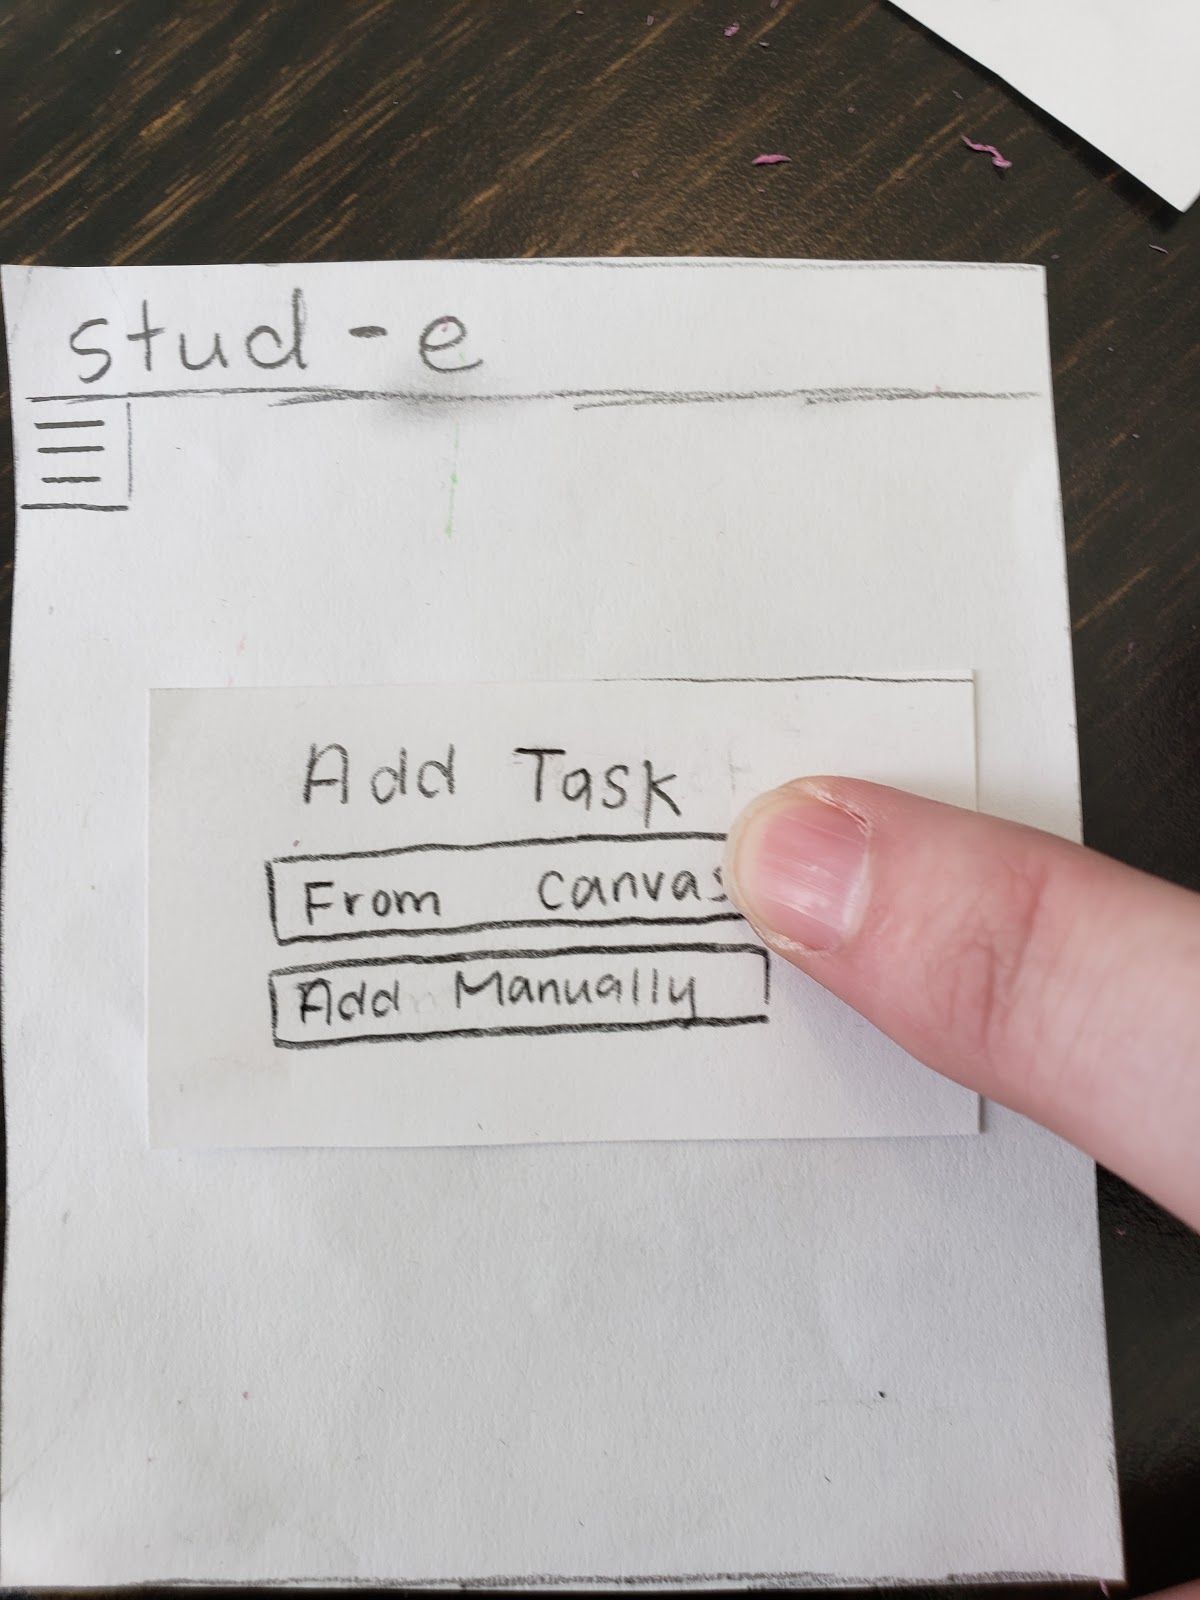 stud-e
Add Task
From Canvas
Add Manually